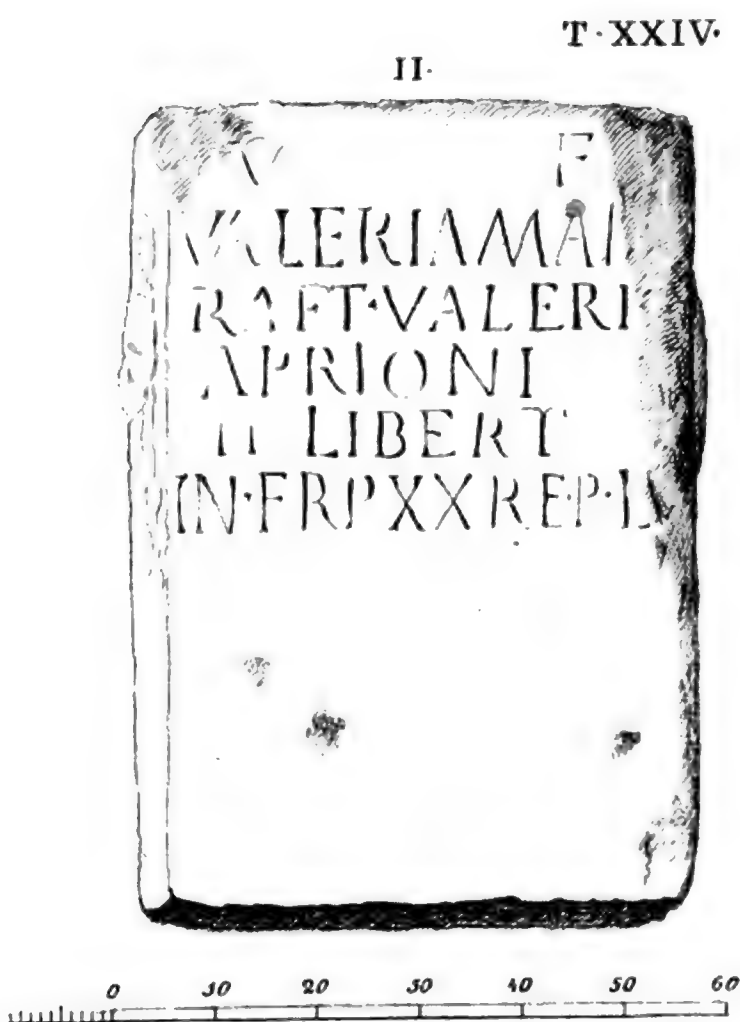 T·XXIV·
II·
V F
VALERIAMAI
RAFT·VALERI
APRIONI
II LIBERT
IN·FRPXXREP·L
0 10 20 30 40 50 60